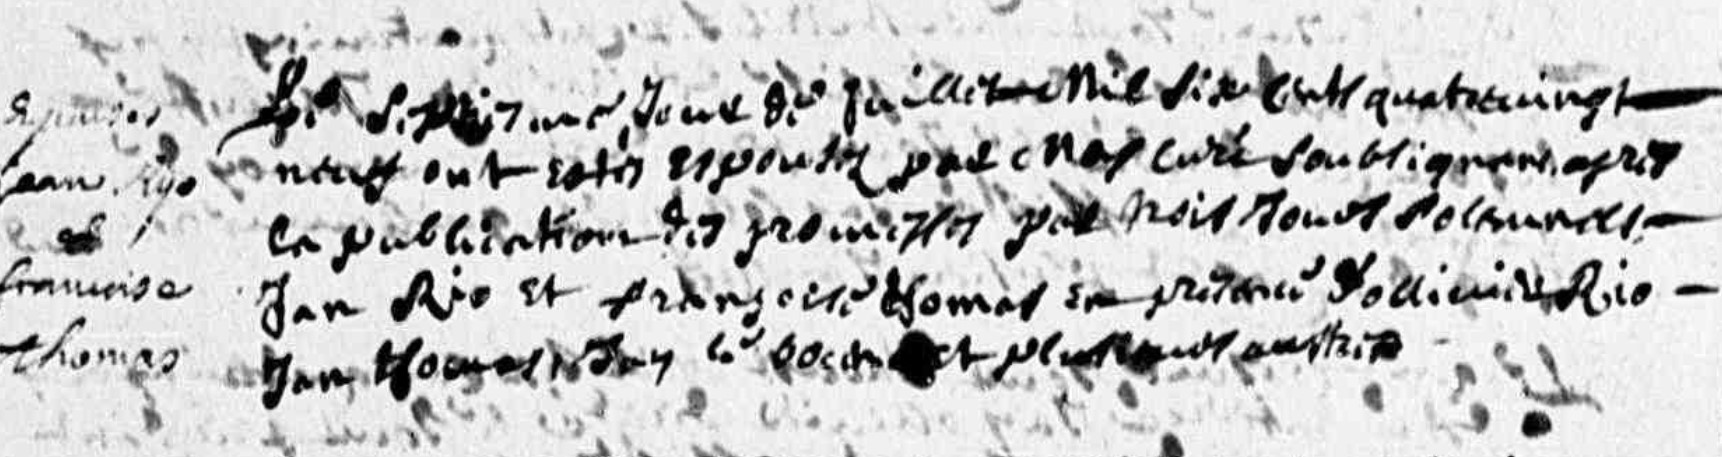 Epouses
Jean Ryo
et
francoise
thomas
Le septiesme Jour de Juillet Mil six cents quatrevingt
neuff ont estes espousés par Moy curé soubsignant, apres
la publication des promesses par trois Jours solemnels
Jan Rio et françoise thomas en presence d'ollivier Rio
Jan thomas, Jan le et plusieurs autres